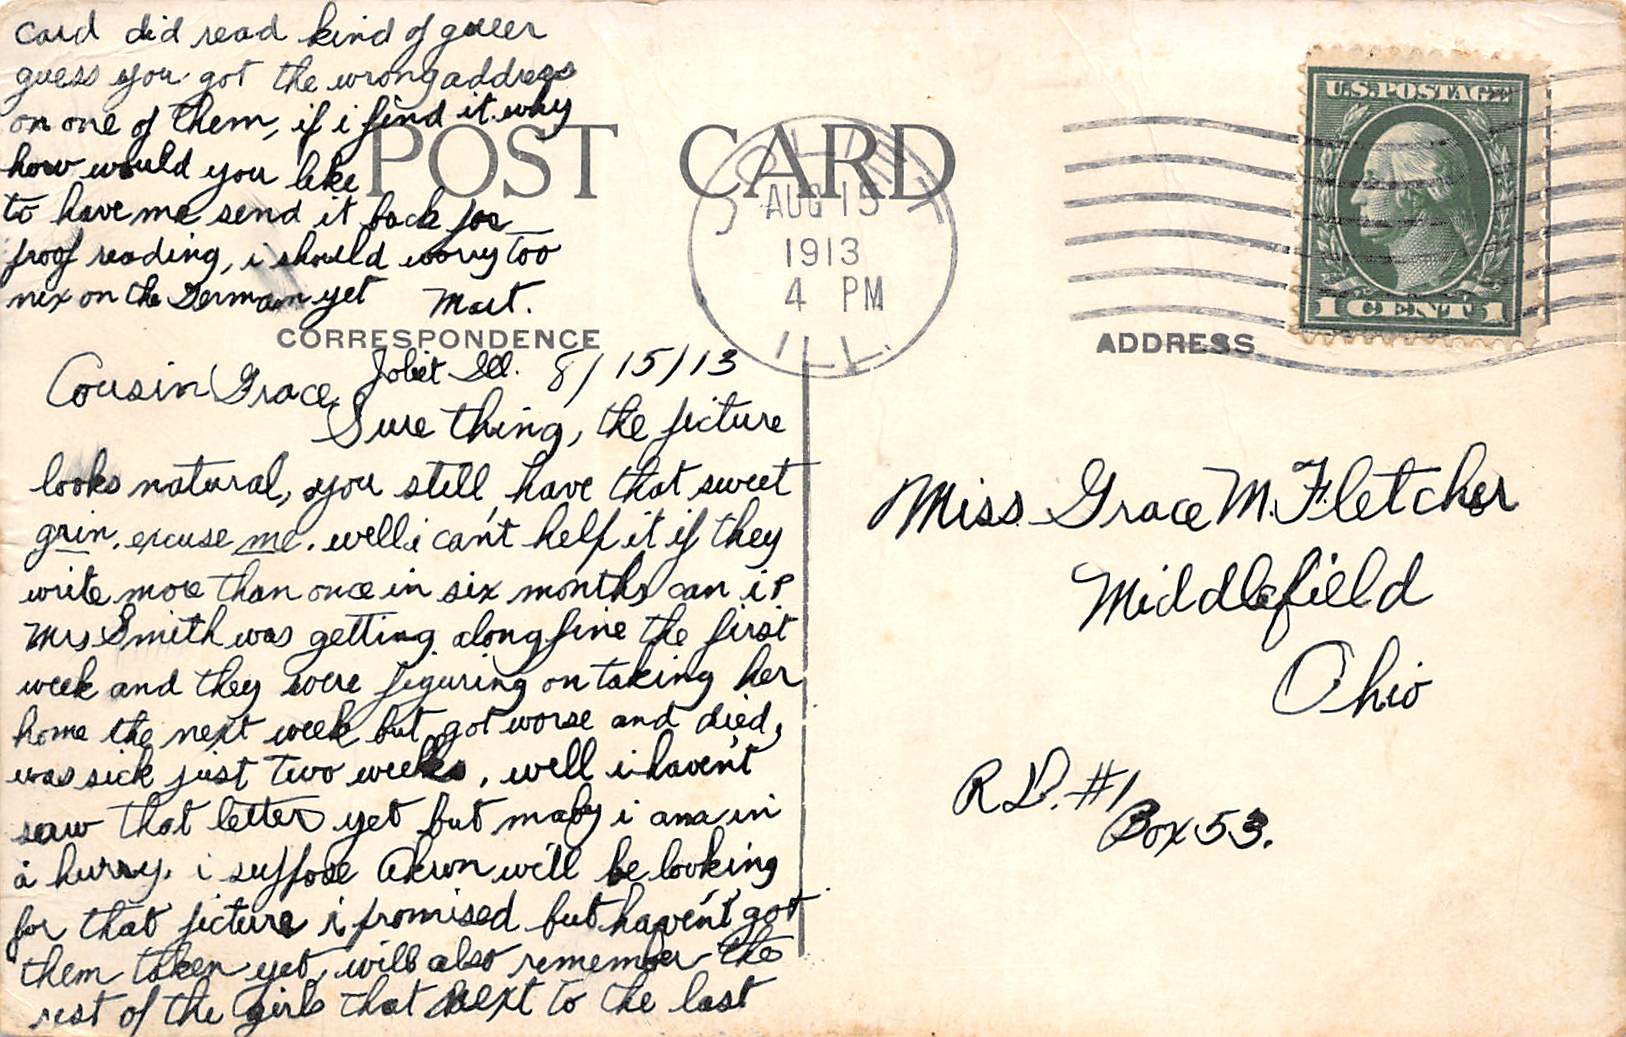 Card did read kind of queer
guess you got the wrong address
on one of them, if i find it why
how would you like
to have me send it back for
proof reading, i should worry too
nix on the German yet Mart.
POST CARD
JOLIET
AUG 15
1913
4 PM
ILL.
U.S. POSTAGE
1 CENT 1
CORRESPONDENCE
ADDRESS
Joliet Ill. 8/15/13
Cousin Grace
Sure thing, the picture
looks natural, you still have that sweet
grin. excuse me. well i can't help it if they
write more than once in six months can i?
Mrs. Smith was getting along fine the first
week and they were figuring on taking her
home the next week but got worse and died,
was sick just two weeks, well i haven't
saw that letter yet but maby i ama in
a hurry. i suppose Akron we'll be looking
for that picture i promised but haven't got
them taken yet, will also remember the
rest of the girls that next to the last
Miss. Grace M. Fletcher
Middlefield
Ohio
R.D. #1
Box 53.